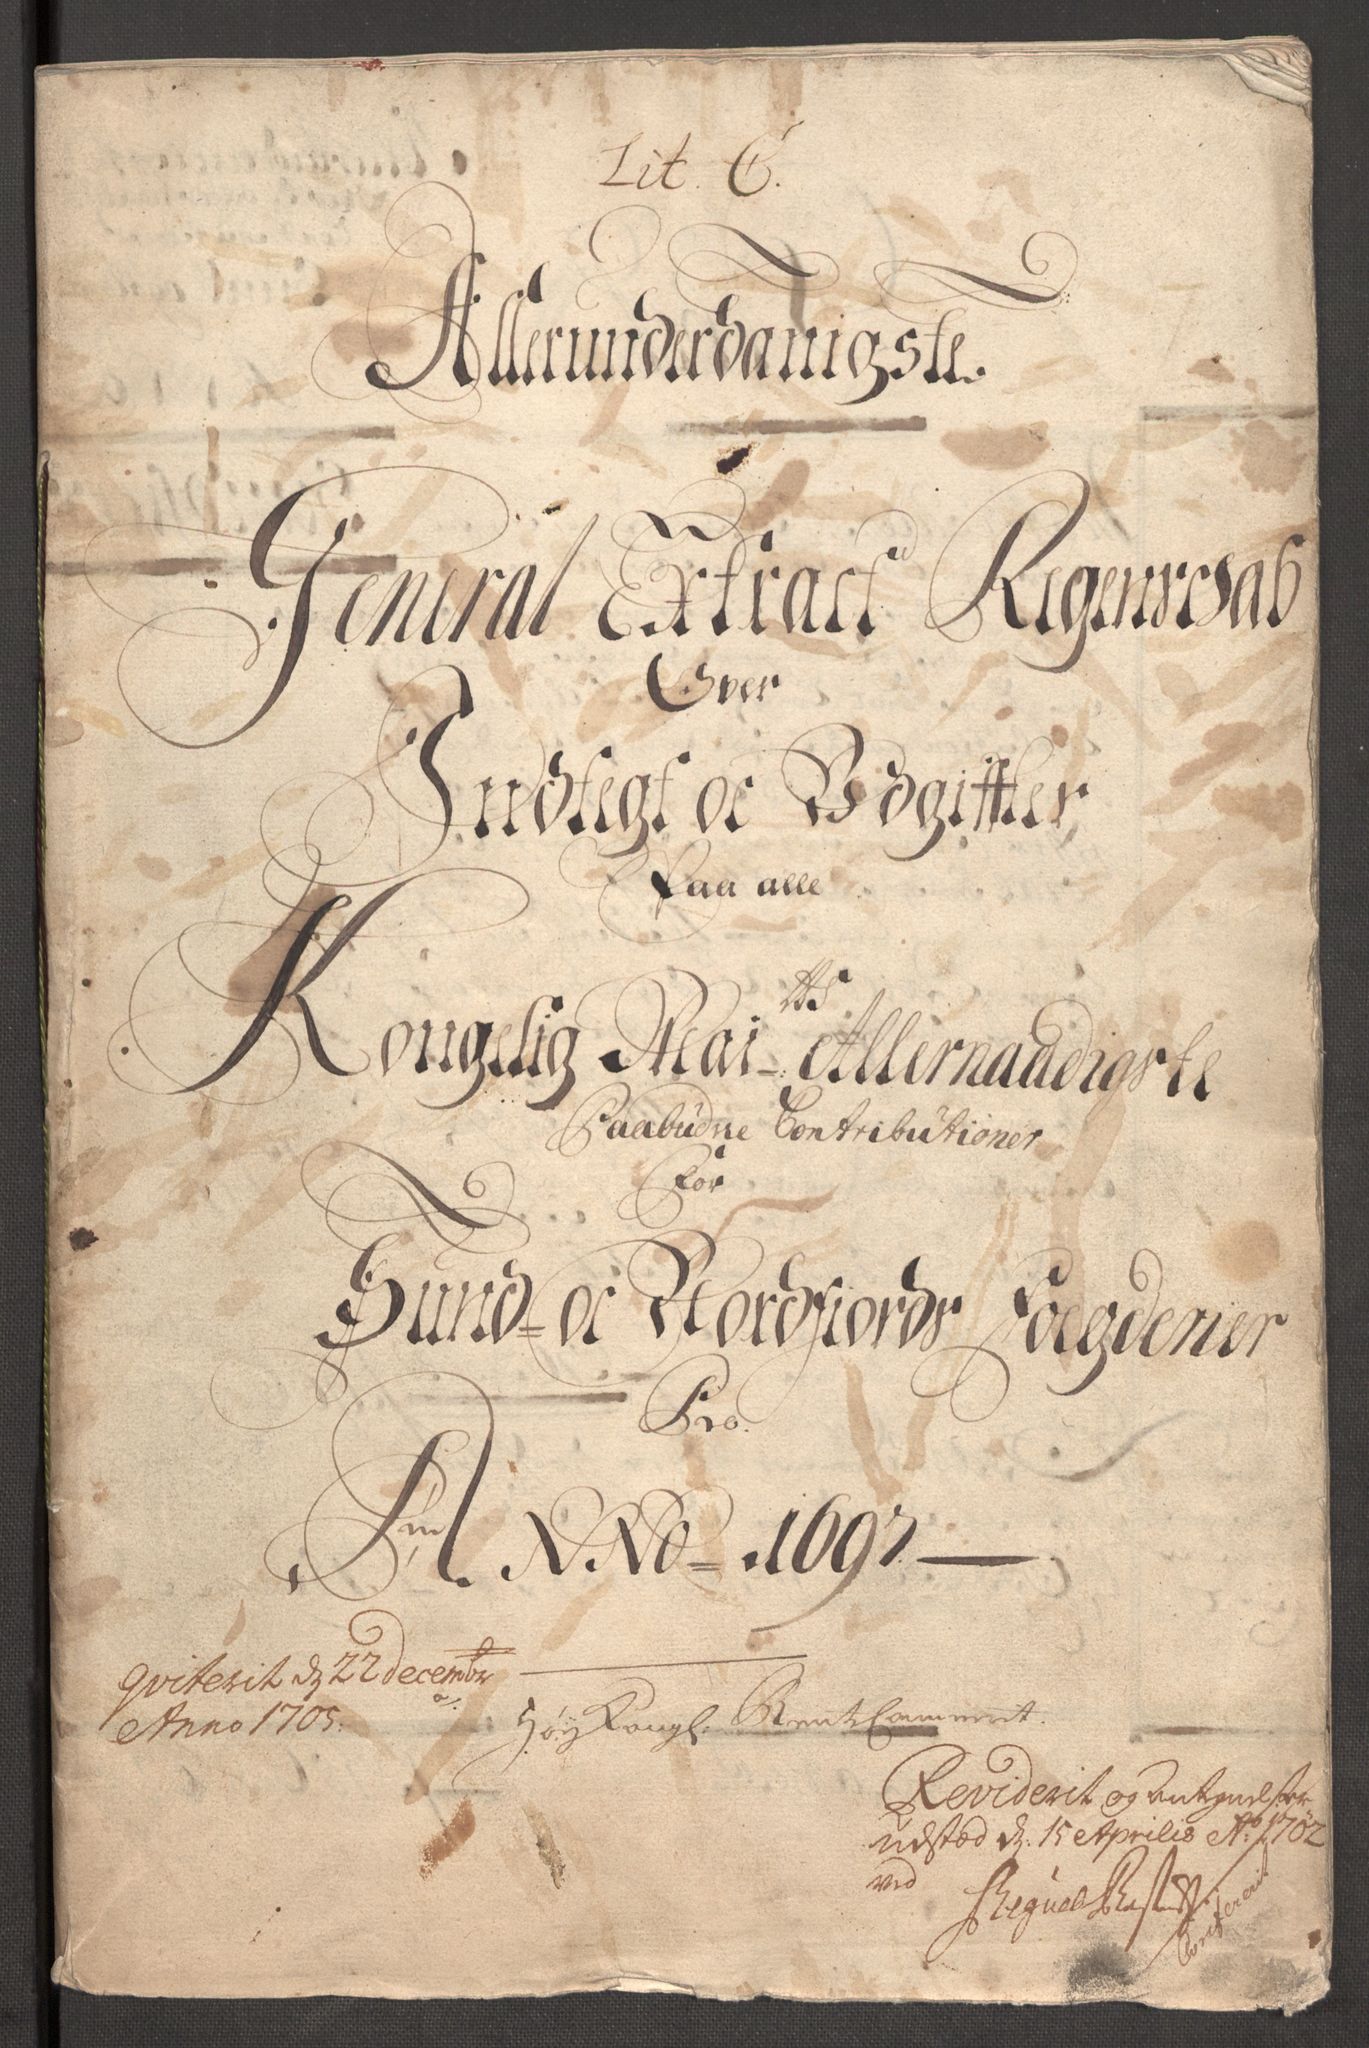 Lit. C.
Allerunderdanigste.
General Extract Regenscab
Over
Indtegt oc Vdgiffter
Paa alle
Kongelig Mai.tts Allernaadigste
Paabudne Contributioner
For
Sund- oc Nordfiords Foegderier
Pro.
ANNO- 1697
qviterit dz 22 decembr
Anno 1705.
Høy Kongl. Rent Cammerit.
Reviderit og antegnelser
udstæd dz. 15 Aprilis Ao. 1702
ved
Confererit